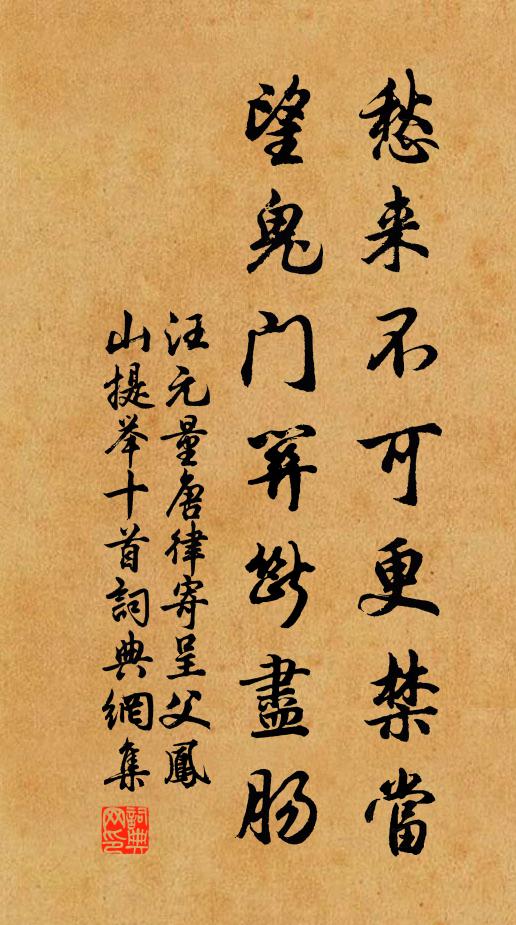 愁来不可更禁當
望鬼门关断盡肠
汪元量唐律寄呈父鳳
山提举十首詞典網集
詞典网印